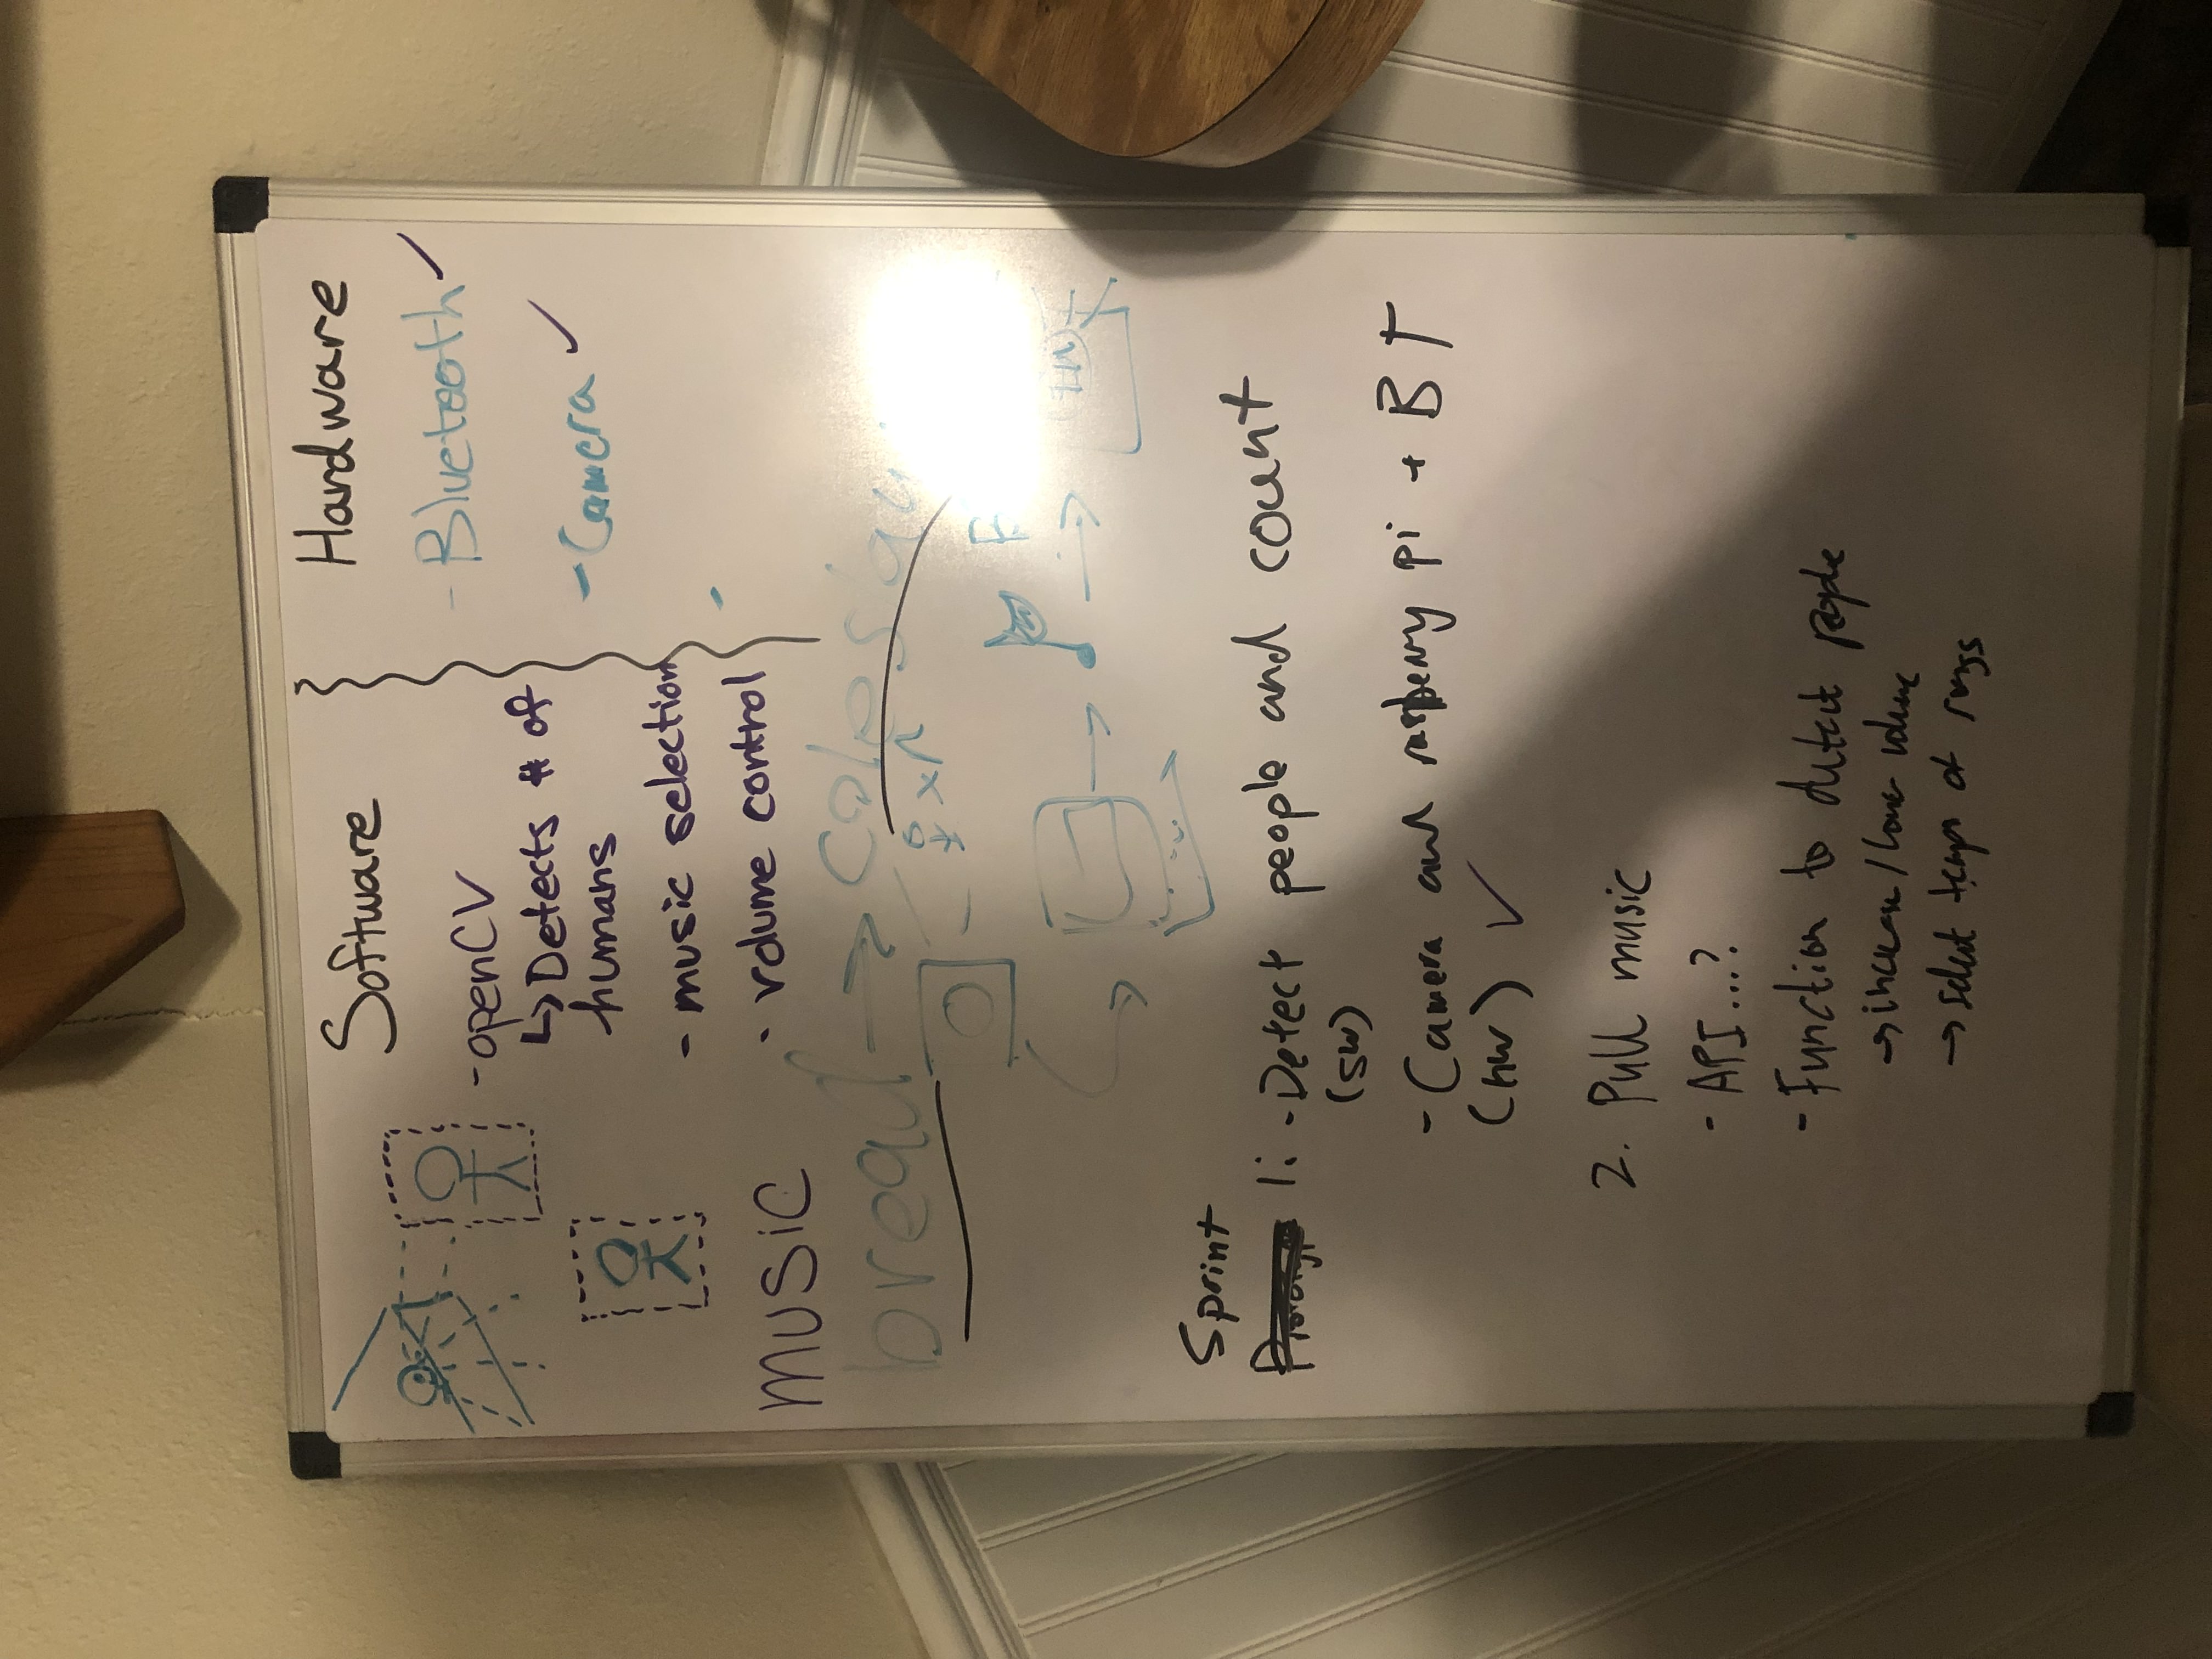 Software
Hardware
- openCV
↳ Detects # of
humans
- music selection
· volume control
- Bluetooth ✓
- Camera ✓
music
Sprint
1: - Detect people and count
(SW)
- Camera and raspberry pi + BT
(hw) ✓
2. Pull music
- API....?
- Function to detect people
→ increase/lower volume
→ select tempo of